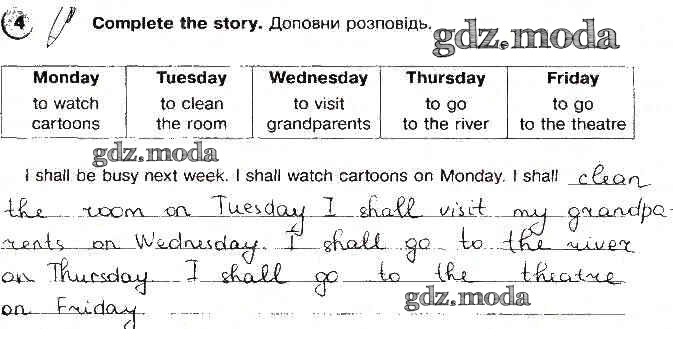 4 Complete the story. Доповни розповідь.
gdz.moda
Monday Tuesday Wednesday Thursday Friday
to watch to clean to visit to go to go
cartoons the room grandparents to the river to the theatre
gdz.moda
I shall be busy next week. I shall watch cartoons on Monday. I shall clean
the room on Tuesday I shall visit my grandpa-
rents on Wednesday. I shall go to the river
on Thursday. I shall go to the theatre
gdz.moda
on Friday